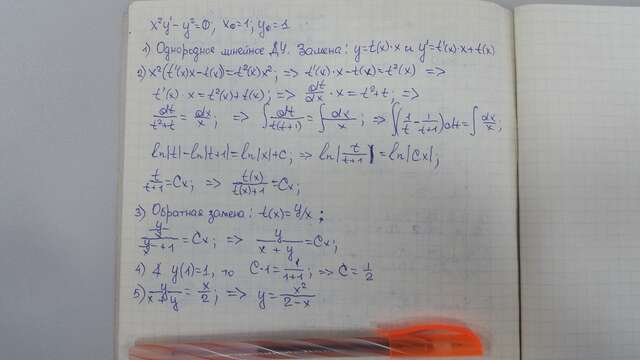 x²y' - y² = 0, x₀=1, y₀=1
1) Однородное линейное ДУ. Замена: y=t(x)·x и y'=t'(x)·x+t(x)
2) x²(t'(x)x-t(x))=t²(x)x²; => t'(x)·x-t(x)=t²(x) =>
t'(x) x = t²(x)+t(x); => dt/dx · x = t²+t; =>
dt/(t²+t) = dx/x; => ∫ dt/(t(t+1)) = ∫ dx/x; => ∫(1/t - 1/(t+1))dt = ∫ dx/x;
ln|t|-ln|t+1|=ln|x|+C; => ln|t/(t+1)| = ln|Cx|;
t/(t+1) = Cx; => t(x)/(t(x)+1) = Cx;
3) Обратная замена: t(x)=y/x;
(y/x)/(y/x+1) = Cx; => y/(x+y) = Cx;
4) y(1)=1, то C·1=1/(1+1); => C=1/2
5) y/(x+y) = x/2; => y = x²/(2-x)